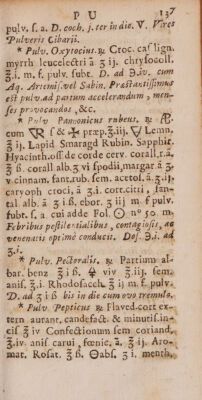 P U 137
pulv. s. a. D. coch. j. ter in die. V. Vires
Pulveris Cibarii.
* Pulv. Oxytocius. ℞ Croc. cass. lign.
myrrh leucelectri ā ʒ ij. chrysocoll.
ʒ.i. m. f. pulv. subt. D. ad ℈.iv. cum
Aq. Artemis. vel Sabin. Præstantissimus
est pulv. ad partum accelerandum, men-
ses provocandos, &c.
* Pulv Pannonicus rubeus, ℞ Æ
cum s & præp. ʒ.iij. Lemn.
ʒ ij. Lapid Smaragd Rubin. Sapphir.
Hyacinth. oss de corde cerv. corall. r. ā.
ʒ ß. corall alb. ʒ vi spodii, margar ā ʒ.
v cinnam. sant. rub. sem. acetos. ā ʒ.ij.
caryoph croci, ā ʒ.i. cort. citri, san-
tal alb. ā ʒ.i ß. ebor. ʒ iij m f pulv.
subt. s. a. cui adde Fol. ☉ nº 50. m.
Febribus pestilentialibus, contagiosis, ac
venenatis optimè conducit. Dos. ℈.i. ad
ʒ.i.
* Pulv. Pectoralis. ℞ Partium al-
bar. benz ʒ i ß. viv ʒ.iij. sem.
anis. ʒ.i. Rhodosacch. ʒ ij m. f. pulv.
D. ad ʒ i ß bis in die cum ovo tremulo.
* Pulv. Pepticus ℞ Flaved. cort ex-
tern aurant. candefact. & minutis. in-
cis ʒ iv Confectionum sem coriand.
ʒ.iv. anis. carui, fœnic. ā. ʒ ij. Aro-
mat. Rosat. ʒ ß. abs. ʒ i. menth.